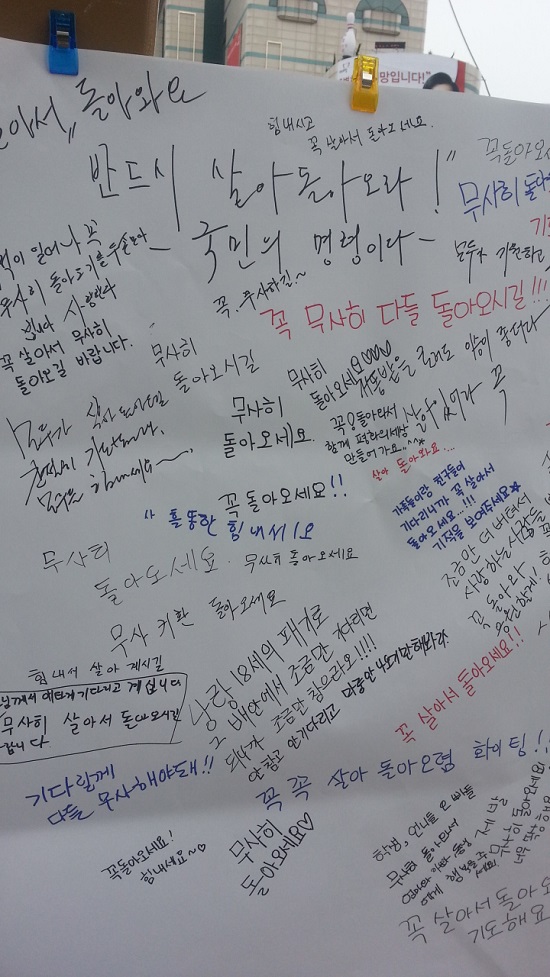 망입니다!
돌아와요
힘내시고
꼭 살아서 돌아오세요.
반드시 살아돌아오라!"
국민의 명령이다~
꼭돌아오
무사히 돌
모두가 기원하고
꼭. 무사하길.~
일어나 꼭
무사히 돌아오기를
사랑한다
꼭 살아서 무사히
돌아오길 바랍니다.
꼭 무사히 다들 돌아오시길!!!
무사히
돌아오시길
무사히
돌아오세요♡♡♡♡
무사히
돌아오세요.
꼭 돌아와서
함께 평화의세상
만들어가요
살아있어라 꼭
살아 돌아와요...
꼭 돌아오세요!!
힘내세요
가족들이랑 친구들이
기다리니까 꼭 살아서
돌아오세요...!!!
기적을 보여주세요☆
조금만 더 버텨서
사랑하는사람들
꼭 돌아와
응원할게.
무사히
돌아오세요.
무사히 돌아오세요
무사 귀환 돌아오세요
힘내서 살아 계시길
기다리고 계십니다
무사히 살아서 돌아오시길
랍니다
낭랑 18세의 패기로
그 배안에서 조금만 기다리면
되니까 조금만 참으라오!!!!
꼭 살아서 돌아오세요!!
기다릴께
다들 무사해야돼!!
꼭 꼭 살아 돌아오렴 화이팅!!
무사히
돌아오세요♡
꼭돌아오세요!
힘내세요~♡
무사히 돌아와서
제발
무사히 돌아오세요
꼭 살아서 돌아오
기도해요